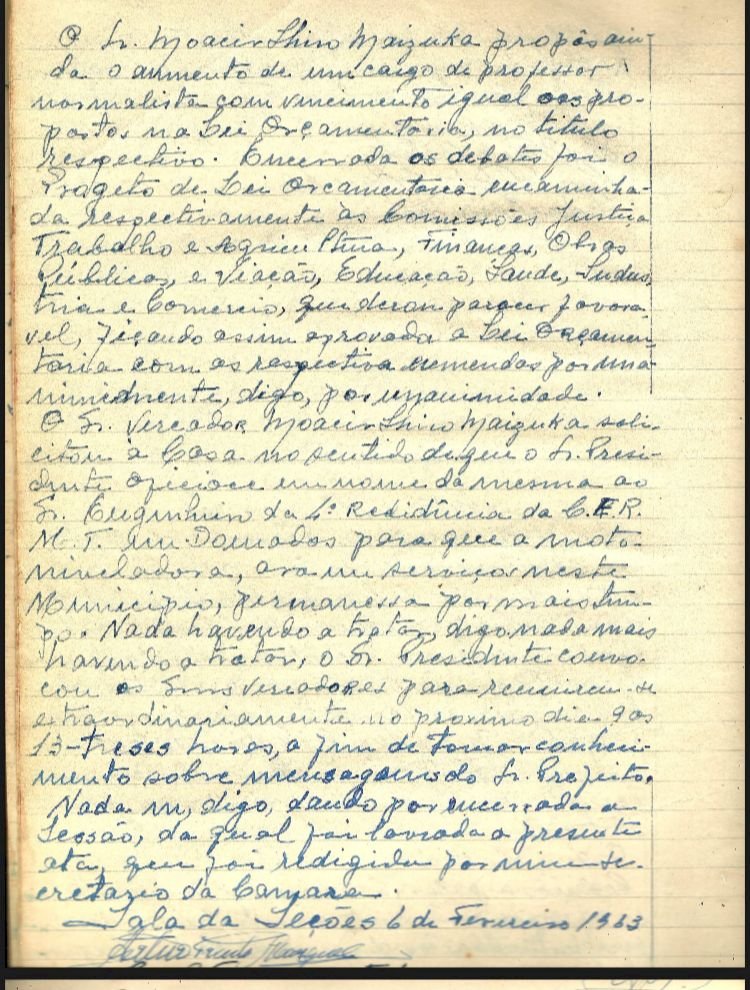 O Sr. Moacir Shiro Maizuka propôs ain-
da o aumento de um cargo de professor
normalista com vincimento igual aos pro-
postos na Lei Orçamentaria, no titulo
respectivo. Encerrada os debates foi o
Progeto de Lei Orcamentaria encaminha-
da respectivamente às Comissões Justiça
Trabalho e Agricultura, Finanças, Obras
Públicas, e Viação, Educação, Saude, Indus
tria e Comercio, que deram parecer favora
vel, ficando assim aprovada a Lei Orçamen
taria com as respectiva emendas por una
nimidmente, digo, por unanimidade.
O Sr. Vereador Moacir Shiro Maizuka soli-
citou à Casa no sentido de que o Sr. Presi-
dente oficiace em nome da mesma ao
Sr. Engenheiro da 4º Residência da C.E.R.
M.T. em Dourados para que a moto-
niveladora, ora em serviços neste
Municipio, permanessa por mais tem-
po. Nada havendo a tratar, digo nada mais
havendo a tratar, o Sr. Presidente convo-
cou os Snrs Vereadores para reunirem-se
extraordinariamente no proximo dia 9 as
13-treses horas, a fim de tomar conheci-
mento sobre mensagens do Sr. Prefeito.
Nada m, digo, dando por encerrada a
Sessão, da qual foi lavrada a presente
ata, que foi redigida por mim se-
cretario da Camara.
Sala da Seções 6 de Fevereiro 1963